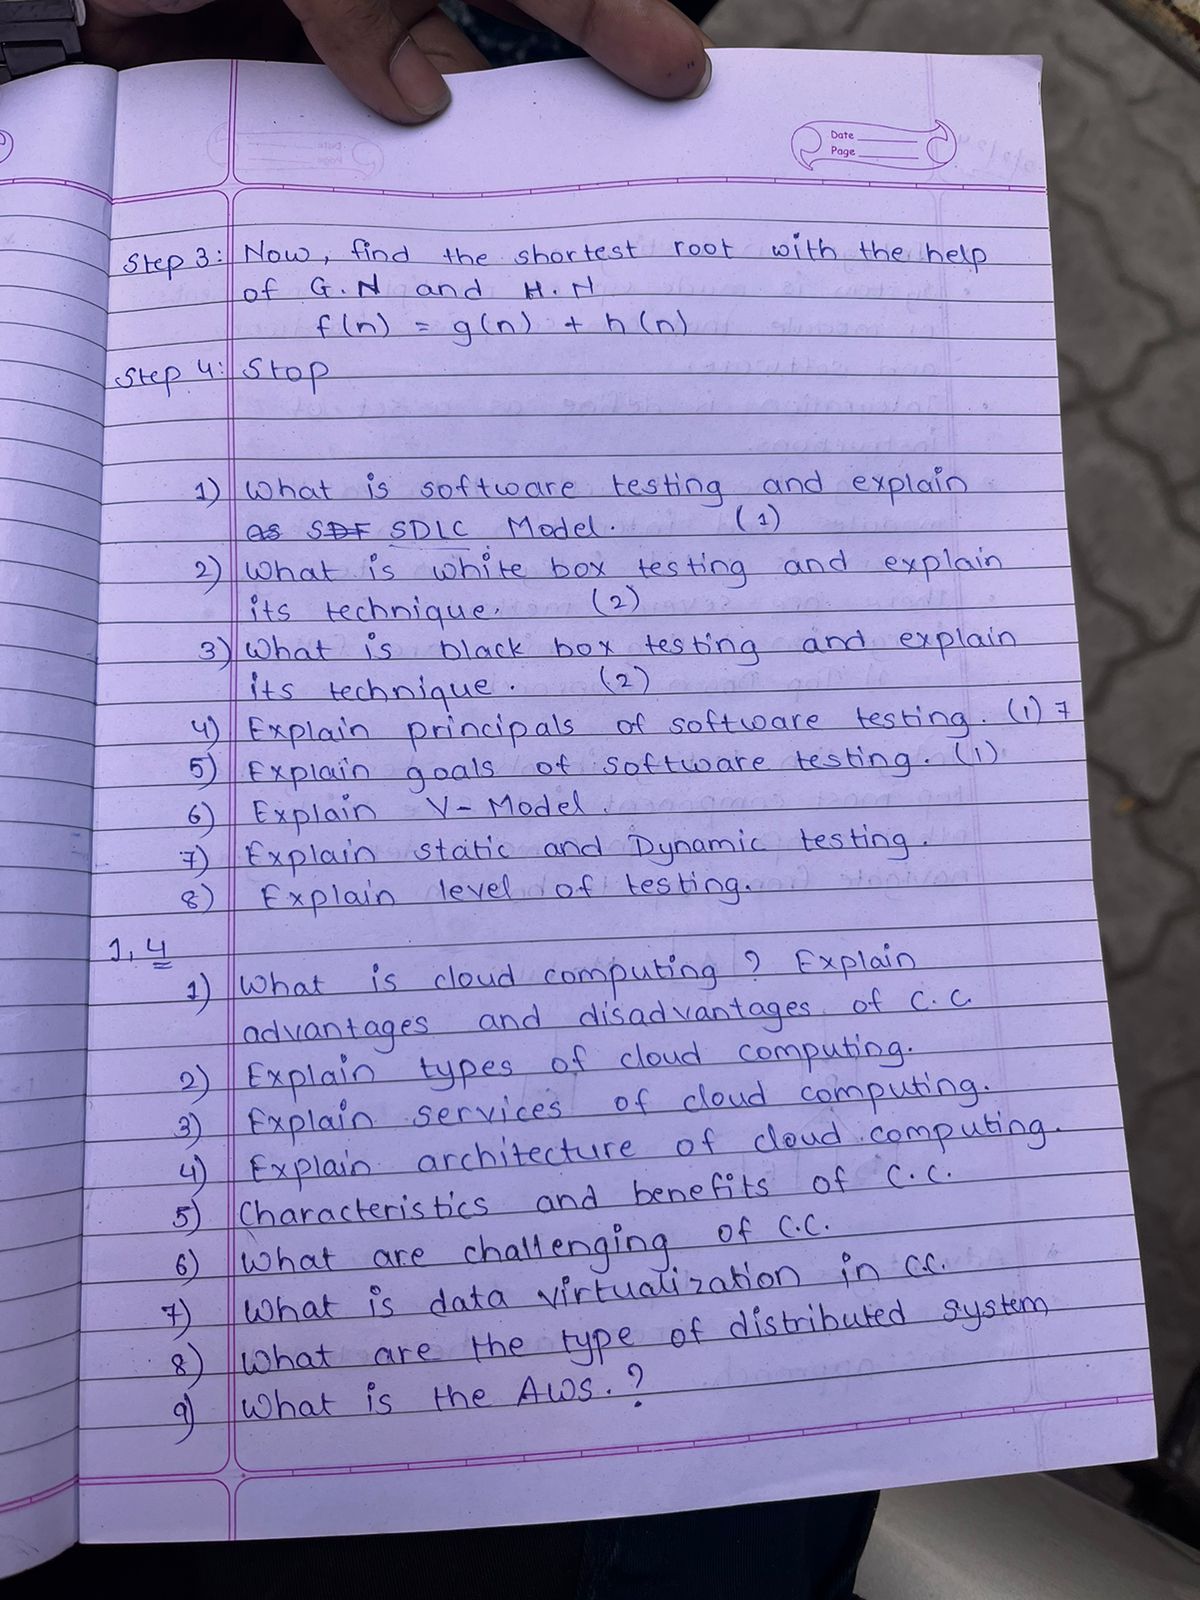 Date
Page
Step 3: Now, find the shortest root with the help
of G.N and H.N
f(n) = g(n) + h(n)
Step 4: Stop
1) What is software testing and explain
as SDF SDLC Model. (1)
2) What is white box testing and explain
its technique. (2)
3) What is black box testing and explain
its technique. (2)
4) Explain principals of software testing. (1) 7
5) Explain goals of software testing. (1)
6) Explain V-Model.
7) Explain static and Dynamic testing.
8) Explain level of testing.
1, 4
1) What is cloud computing? Explain
advantages and disadvantages of C.C.
2) Explain types of cloud computing.
3) Explain services of cloud computing.
4) Explain architecture of cloud computing.
5) Characteristics and benefits of C.C.
6) What are challenging of C.C.
7) What is data virtualization in CC.
8) What are the type of distributed system
9) What is the AWS.?